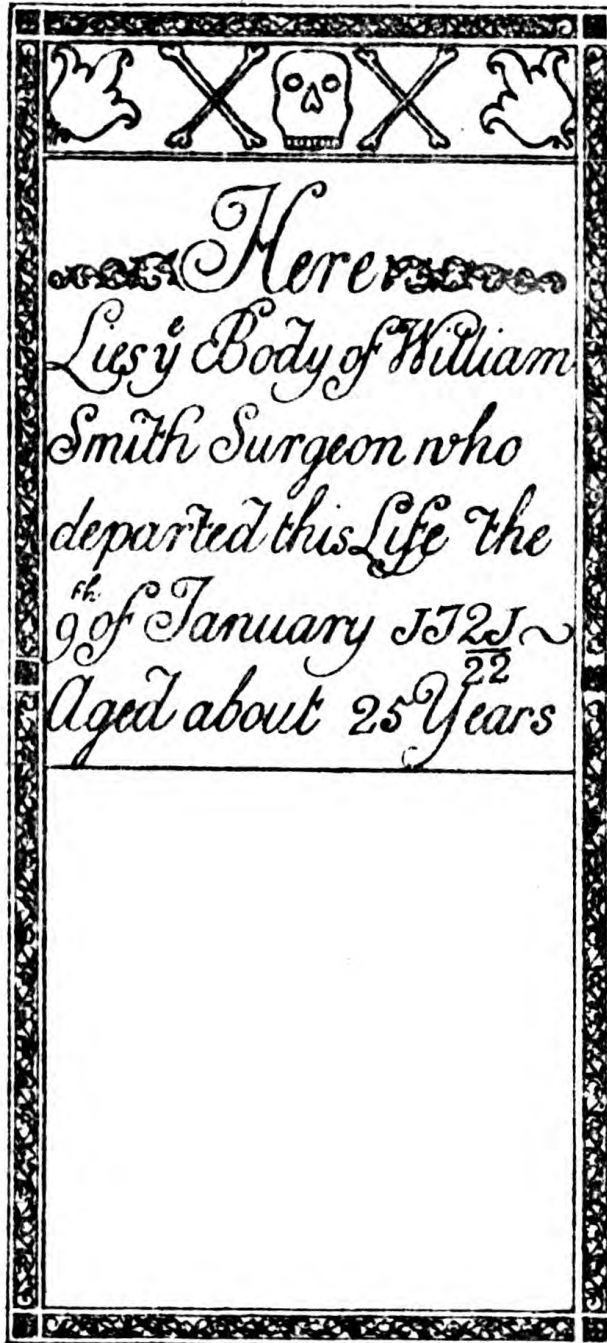 Here
Lies yᵉ Body of William
Smith Surgeon who
departed this Life the
9ᵗʰ of January J72J
22
Aged about 25 Years